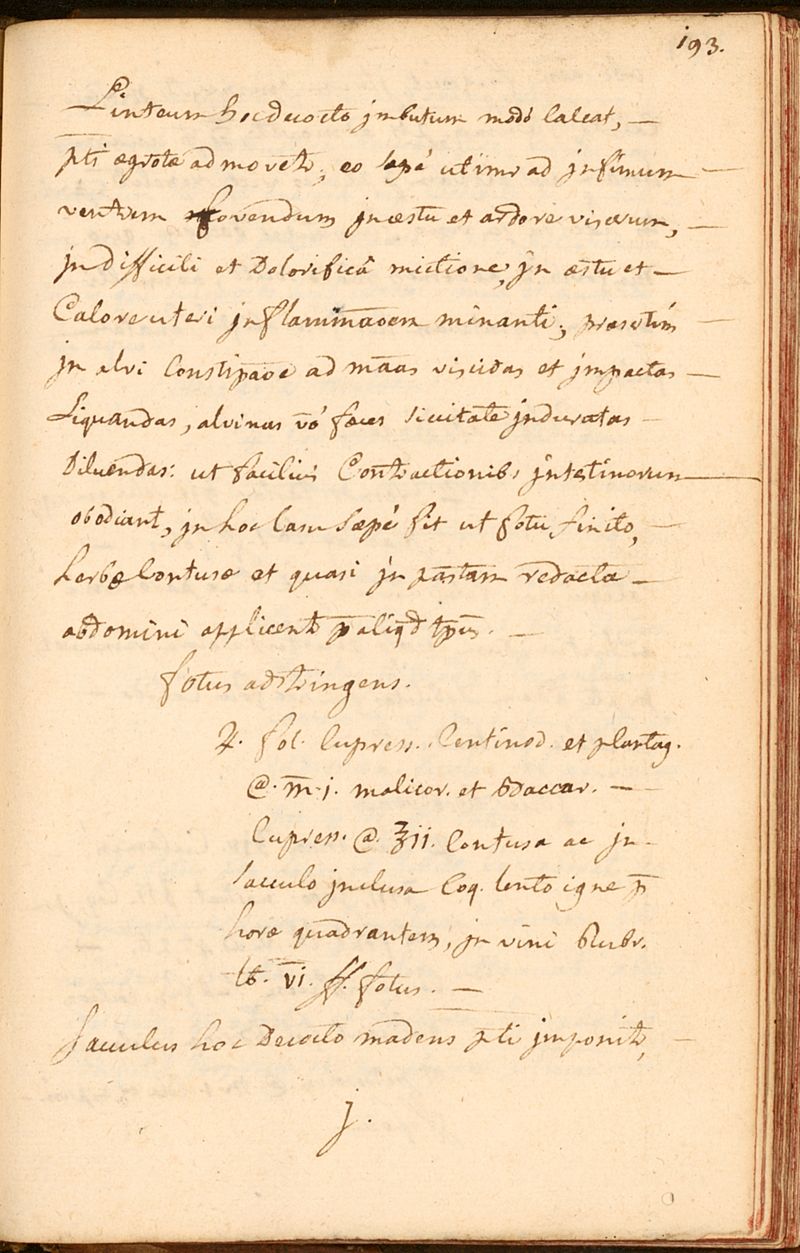 193.
Linteum hoc decocto jmbutum modò caleat, —
pti ægrotæ admovetr, eo sæpè utimr ad jnfimum —
ventrem fovendum jn æstu et ardore viscerum, —
jn difficili et Dolorificâ mictione, jn æstu et —
Calore uteri jnflam̄aōem minanti, præsertim —
jn alvi Constipaōe ad māas viscidas et jmpactas —
Liquandas, alvinas vō fæces siccitate jnduratas —
Diluendas: ut faciliùs Contractionibs jntestinorum —
obediant, jn hoc Casu Sæpè fit ut fotu finito, —
herbæ Contusæ et quasi jn pastam redactæ —
abdomini applicentr p̄ aliqd tp̄us. —
fotus adstringens.
♃. fol. Cupress. Centinod. et plantag.
@. m̄. j. malicor. et baccar. —
Cupress. @. ℥ii. Contusa ac jn-
sacculo jnclusa Coq. lento igne p̄
horæ quadrantem, jn vini Rubr.
lb. vi. ff. fotus. —
Sacculus hoc Decocto madens pti jmponitr, —
j.